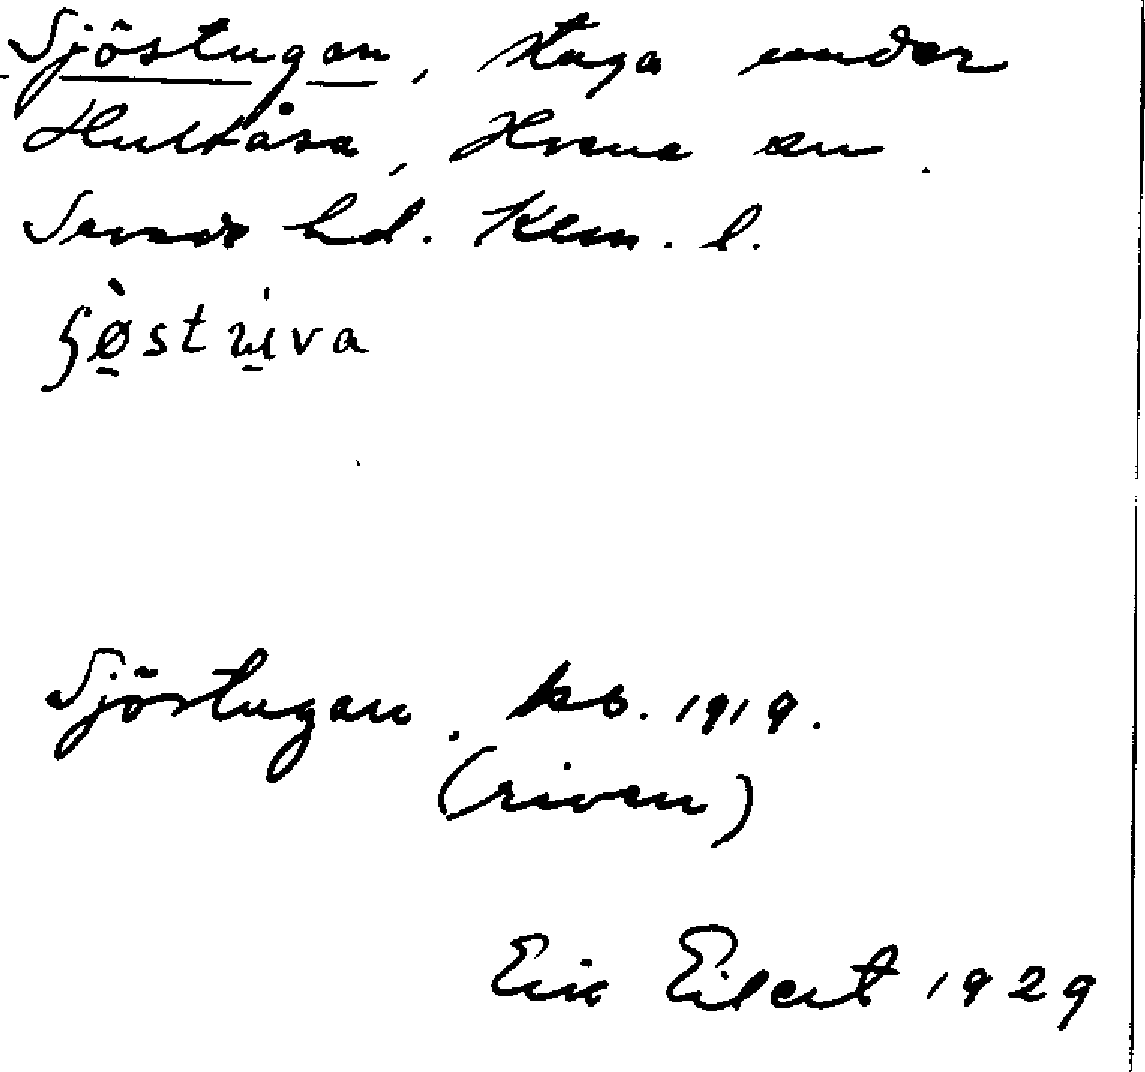 Sjöstugan, stuga under
Hultåsa, Horna sn.
Sevede hd. Kalm. l.
ʂø̀stu̇va
Sjöstugan. kb. 1919.
(riven)
Eric Eilert 1929